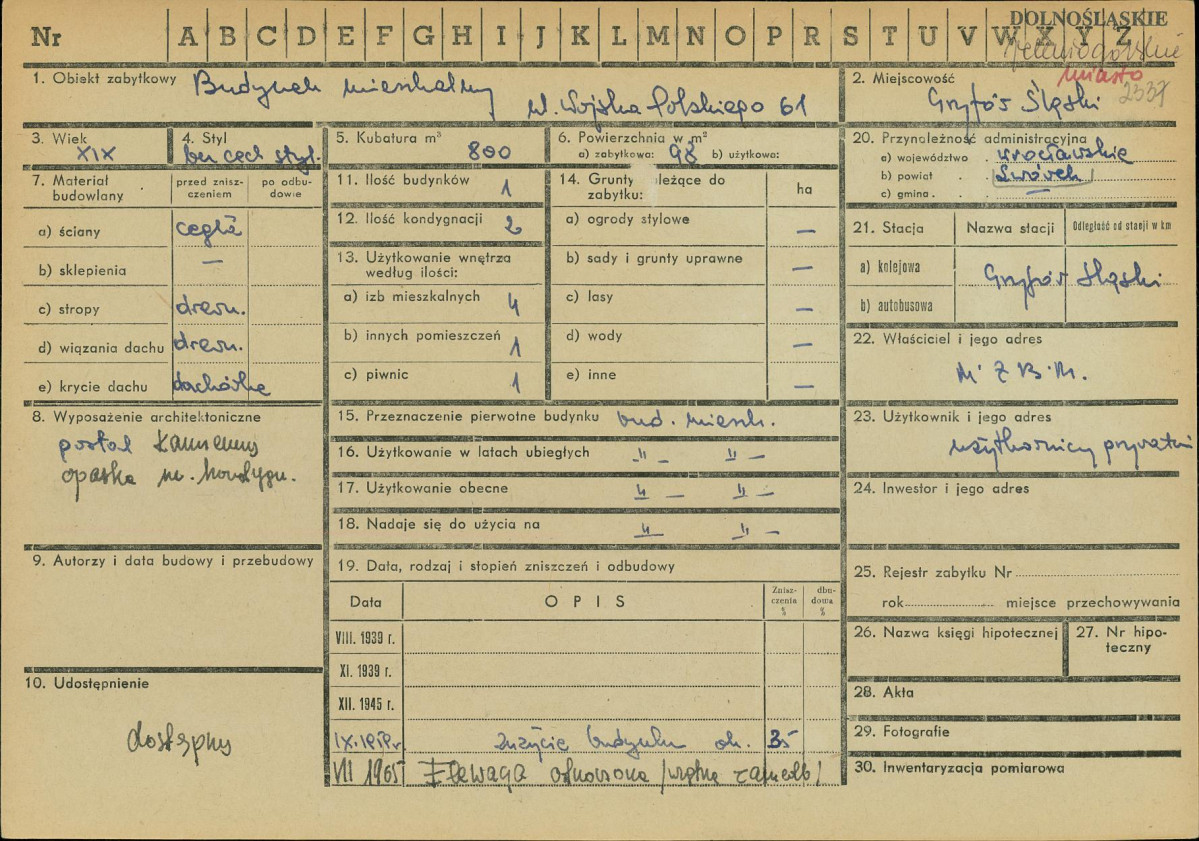 DOLNOŚLĄSKIE
Nr A B C D E F G H I J K L M N O P R S T U V W X Y Z
Jeleniogórskie
miasto
2337
1. Obiekt zabytkowy Budynek mieszkalny
ul. Wojska Polskiego 61
2. Miejscowość
Gryfów Śląski
3. Wiek
XIX
4. Styl
bez cech styl.
5. Kubatura m³ 800
6. Powierzchnia w m²
a) zabytkowa: 98 b) użytkowa:
20. Przynależność administracyjna
a) województwo wrocławskie
b) powiat Lwówek
c) gmina —
7. Materiał budowlany
przed zniszczeniem
po odbudowie
a) ściany cegła
b) sklepienia —
c) stropy drewn.
d) wiązania dachu drewn.
e) krycie dachu dachówka
11. Ilość budynków 1
12. Ilość kondygnacji 2
13. Użytkowanie wnętrza według ilości:
a) izb mieszkalnych 4
b) innych pomieszczeń 1
c) piwnic 1
14. Grunty należące do zabytku: ha
a) ogrody stylowe —
b) sady i grunty uprawne —
c) lasy —
d) wody —
e) inne —
21. Stacja Nazwa stacji Odległość od stacji w km
a) kolejowa
Gryfów Śląski
b) autobusowa
22. Właściciel i jego adres
M. Z. B. M.
8. Wyposażenie architektoniczne
portal kamienny
opaska m. kondygn.
15. Przeznaczenie pierwotne budynku bud. mieszk.
16. Użytkowanie w latach ubiegłych -"- -"-
17. Użytkowanie obecne -"- -"-
18. Nadaje się do użycia na -"- -"-
23. Użytkownik i jego adres
użytkownicy prywatni
24. Inwestor i jego adres
9. Autorzy i data budowy i przebudowy
19. Data, rodzaj i stopień zniszczeń i odbudowy
Data OPIS Zniszczenia % dbudowa %
VIII. 1939 r.
XI. 1939 r.
XII. 1945 r.
IX. 1959 r. zużycie budynku ok. 35
VII 1965 Elewaga odnowiona
25. Rejestr zabytku Nr
rok miejsce przechowywania
26. Nazwa księgi hipotecznej
27. Nr hipoteczny
28. Akta
29. Fotografie
30. Inwentaryzacja pomiarowa
10. Udostępnienie
dostępny